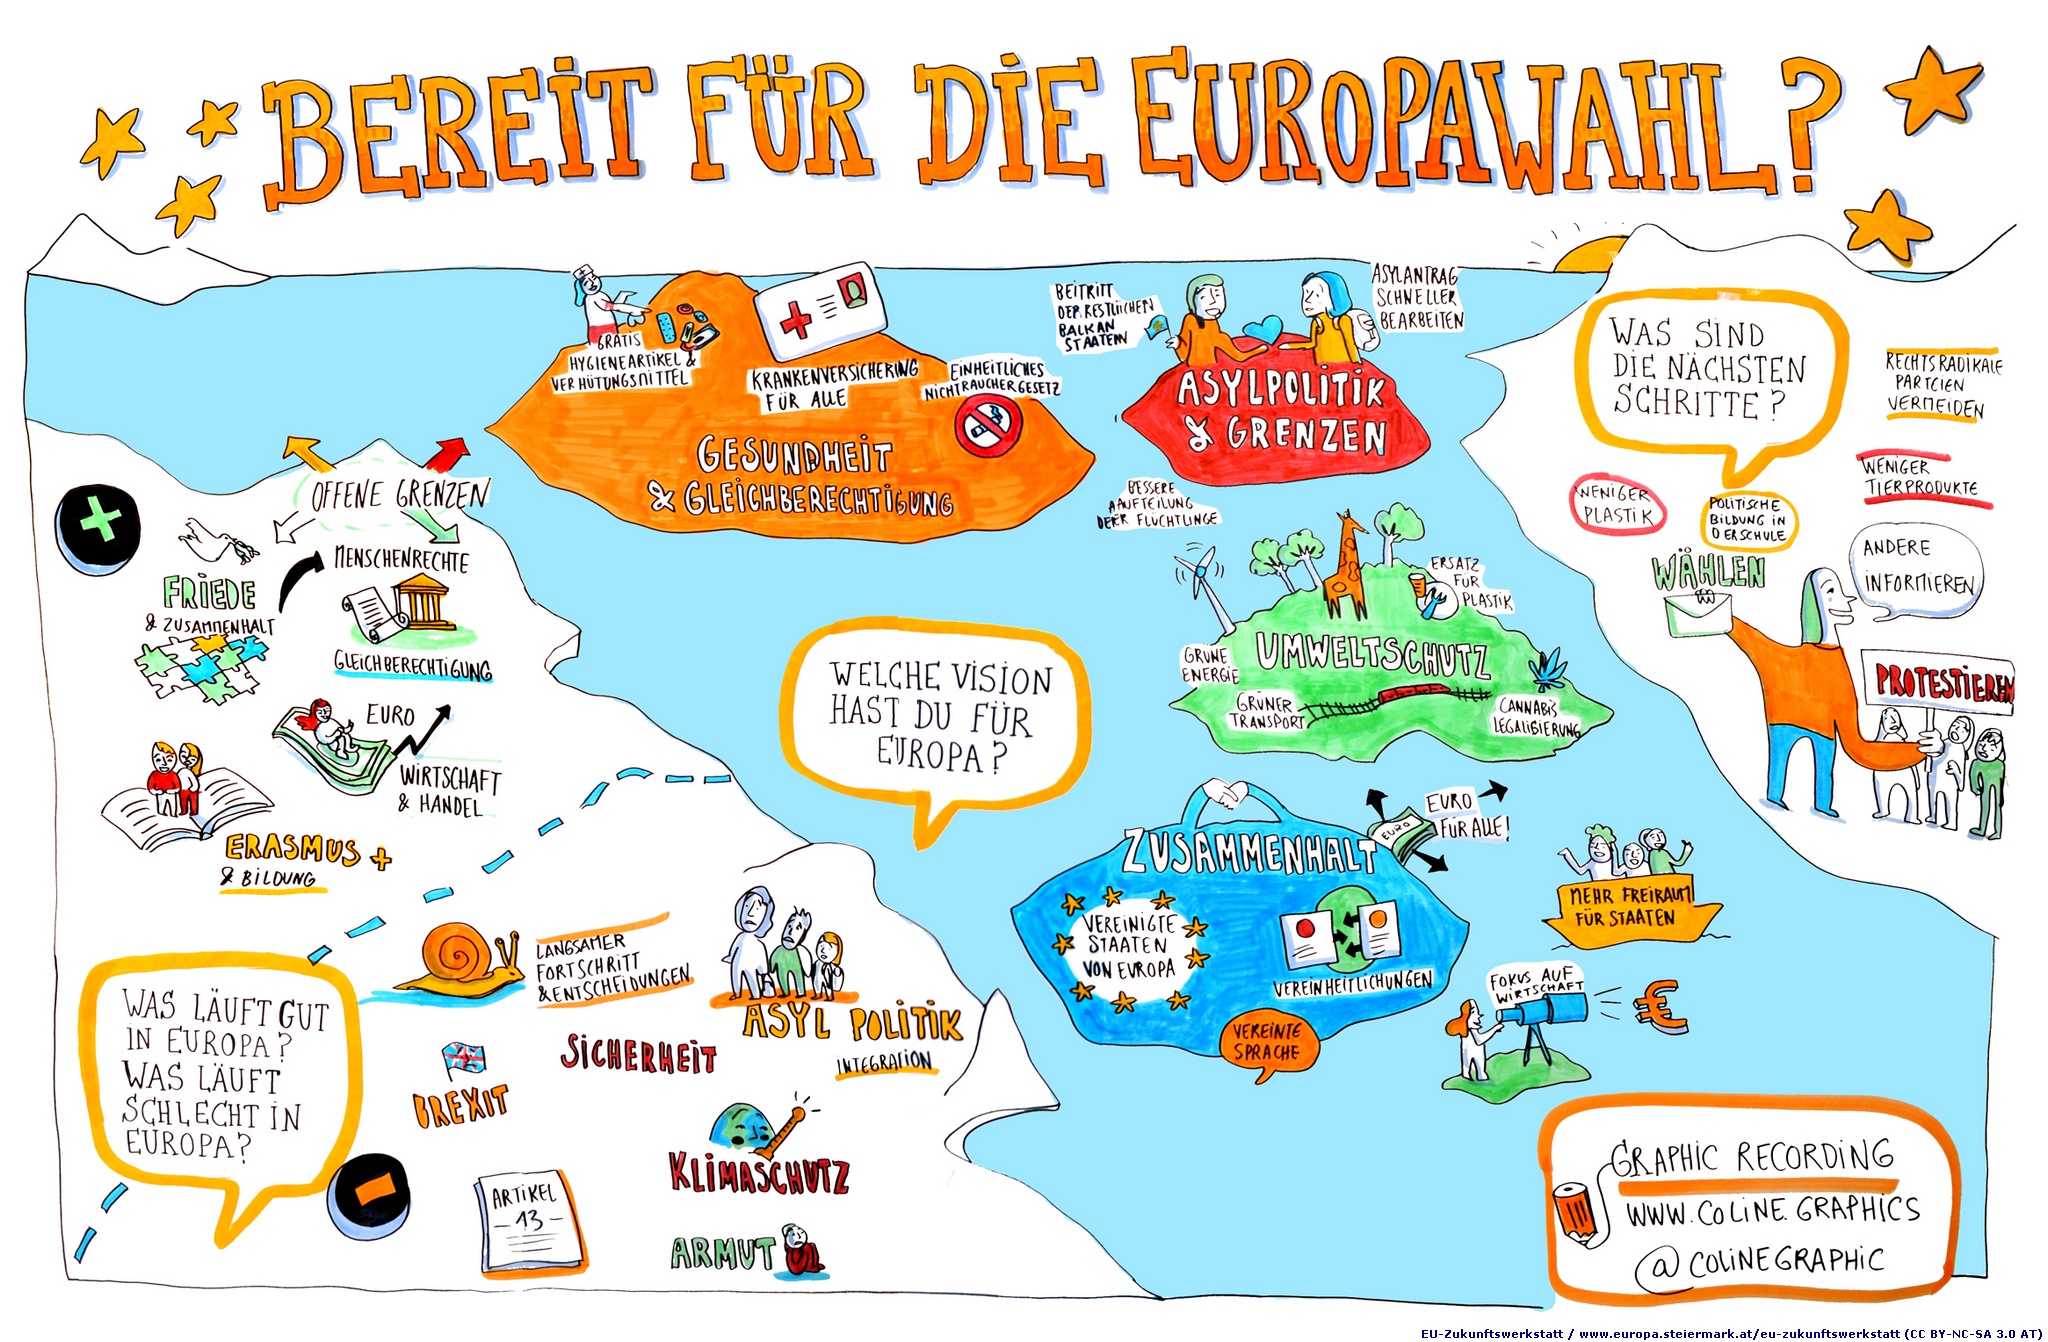 BEREIT FÜR DIE EUROPAWAHL?
GRATIS
HYGIENEARTIKEL &
VERHÜTUNGSMITTEL
KRANKENVERSICHERING
FÜR ALLE
EINHEITLICHES
NICHTRAUCHERGESETZ
GESUNDHEIT
& GLEICHBERECHTIGUNG
BEITRITT
DER RESTLICHEN
BALKAN
STAATEN
ASYLANTRAG
SCHNELLER
BEARBEITEN
ASYLPOLITIK
& GRENZEN
BESSERE
AAUFTEILUNG
DEER FLÜCHTLINGE
WAS SIND
DIE NÄCHSTEN
SCHRITTE?
RECHTSRADIKALE
PARTEIEN
VERMEIDEN
WENIGER
TIERPRODUKTE
WENIGER
PLASTIK
POLITISCHE
BILDUNG IN
DERSCHULE
WÄHLEN
ANDERE
INFORMIEREN
PROTESTIEREN
OFFENE GRENZEN
MENSCHENRECHTE
FRIEDE
& ZUSAMMENHALT
GLEICHBERECHTIGUNG
EURO
WIRTSCHAFT
& HANDEL
ERASMUS +
& BILDUNG
WELCHE VISION
HAST DU FÜR
EUROPA?
ERSATZ
FÜR
PLASTIK
UMWELTSCHUTZ
GRÜNE
ENERGIE
GRÜNER
TRANSPORT
CANNABIS
LEGALISIERUNG
ZUSAMMENHALT
EURO
EURO
FÜR ALLE!
VEREINIGTE
STAATEN
VON EUROPA
VEREINHEITLICHUNGEN
VEREINTE
SPRACHE
MEHR FREIRAUM
FÜR STAATEN
FOKUS AUF
WIRTSCHAFT
€
WAS LÄUFT GUT
IN EUROPA?
WAS LÄUFT
SCHLECHT IN
EUROPA?
LANGSAMER
FORTSCHRITT
& ENTSCHEIDUNGEN
ASYL POLITIK
INTEGRATION
SICHERHEIT
BREXIT
KLIMASCHUTZ
ARTIKEL
–13–
ARMUT
GRAPHIC RECORDING
WWW.COLINE.GRAPHICS
@COLINEGRAPHIC
EU-Zukunftswerkstatt / www.europa.steiermark.at/eu-zukunftswerkstatt (CC BY-NC-SA 3.0 AT)